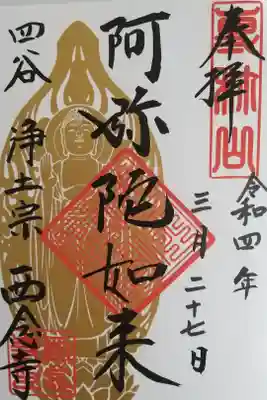 奉拝
令和四年
三月二十七日
阿弥陀如来
四谷 浄土宗 西念寺